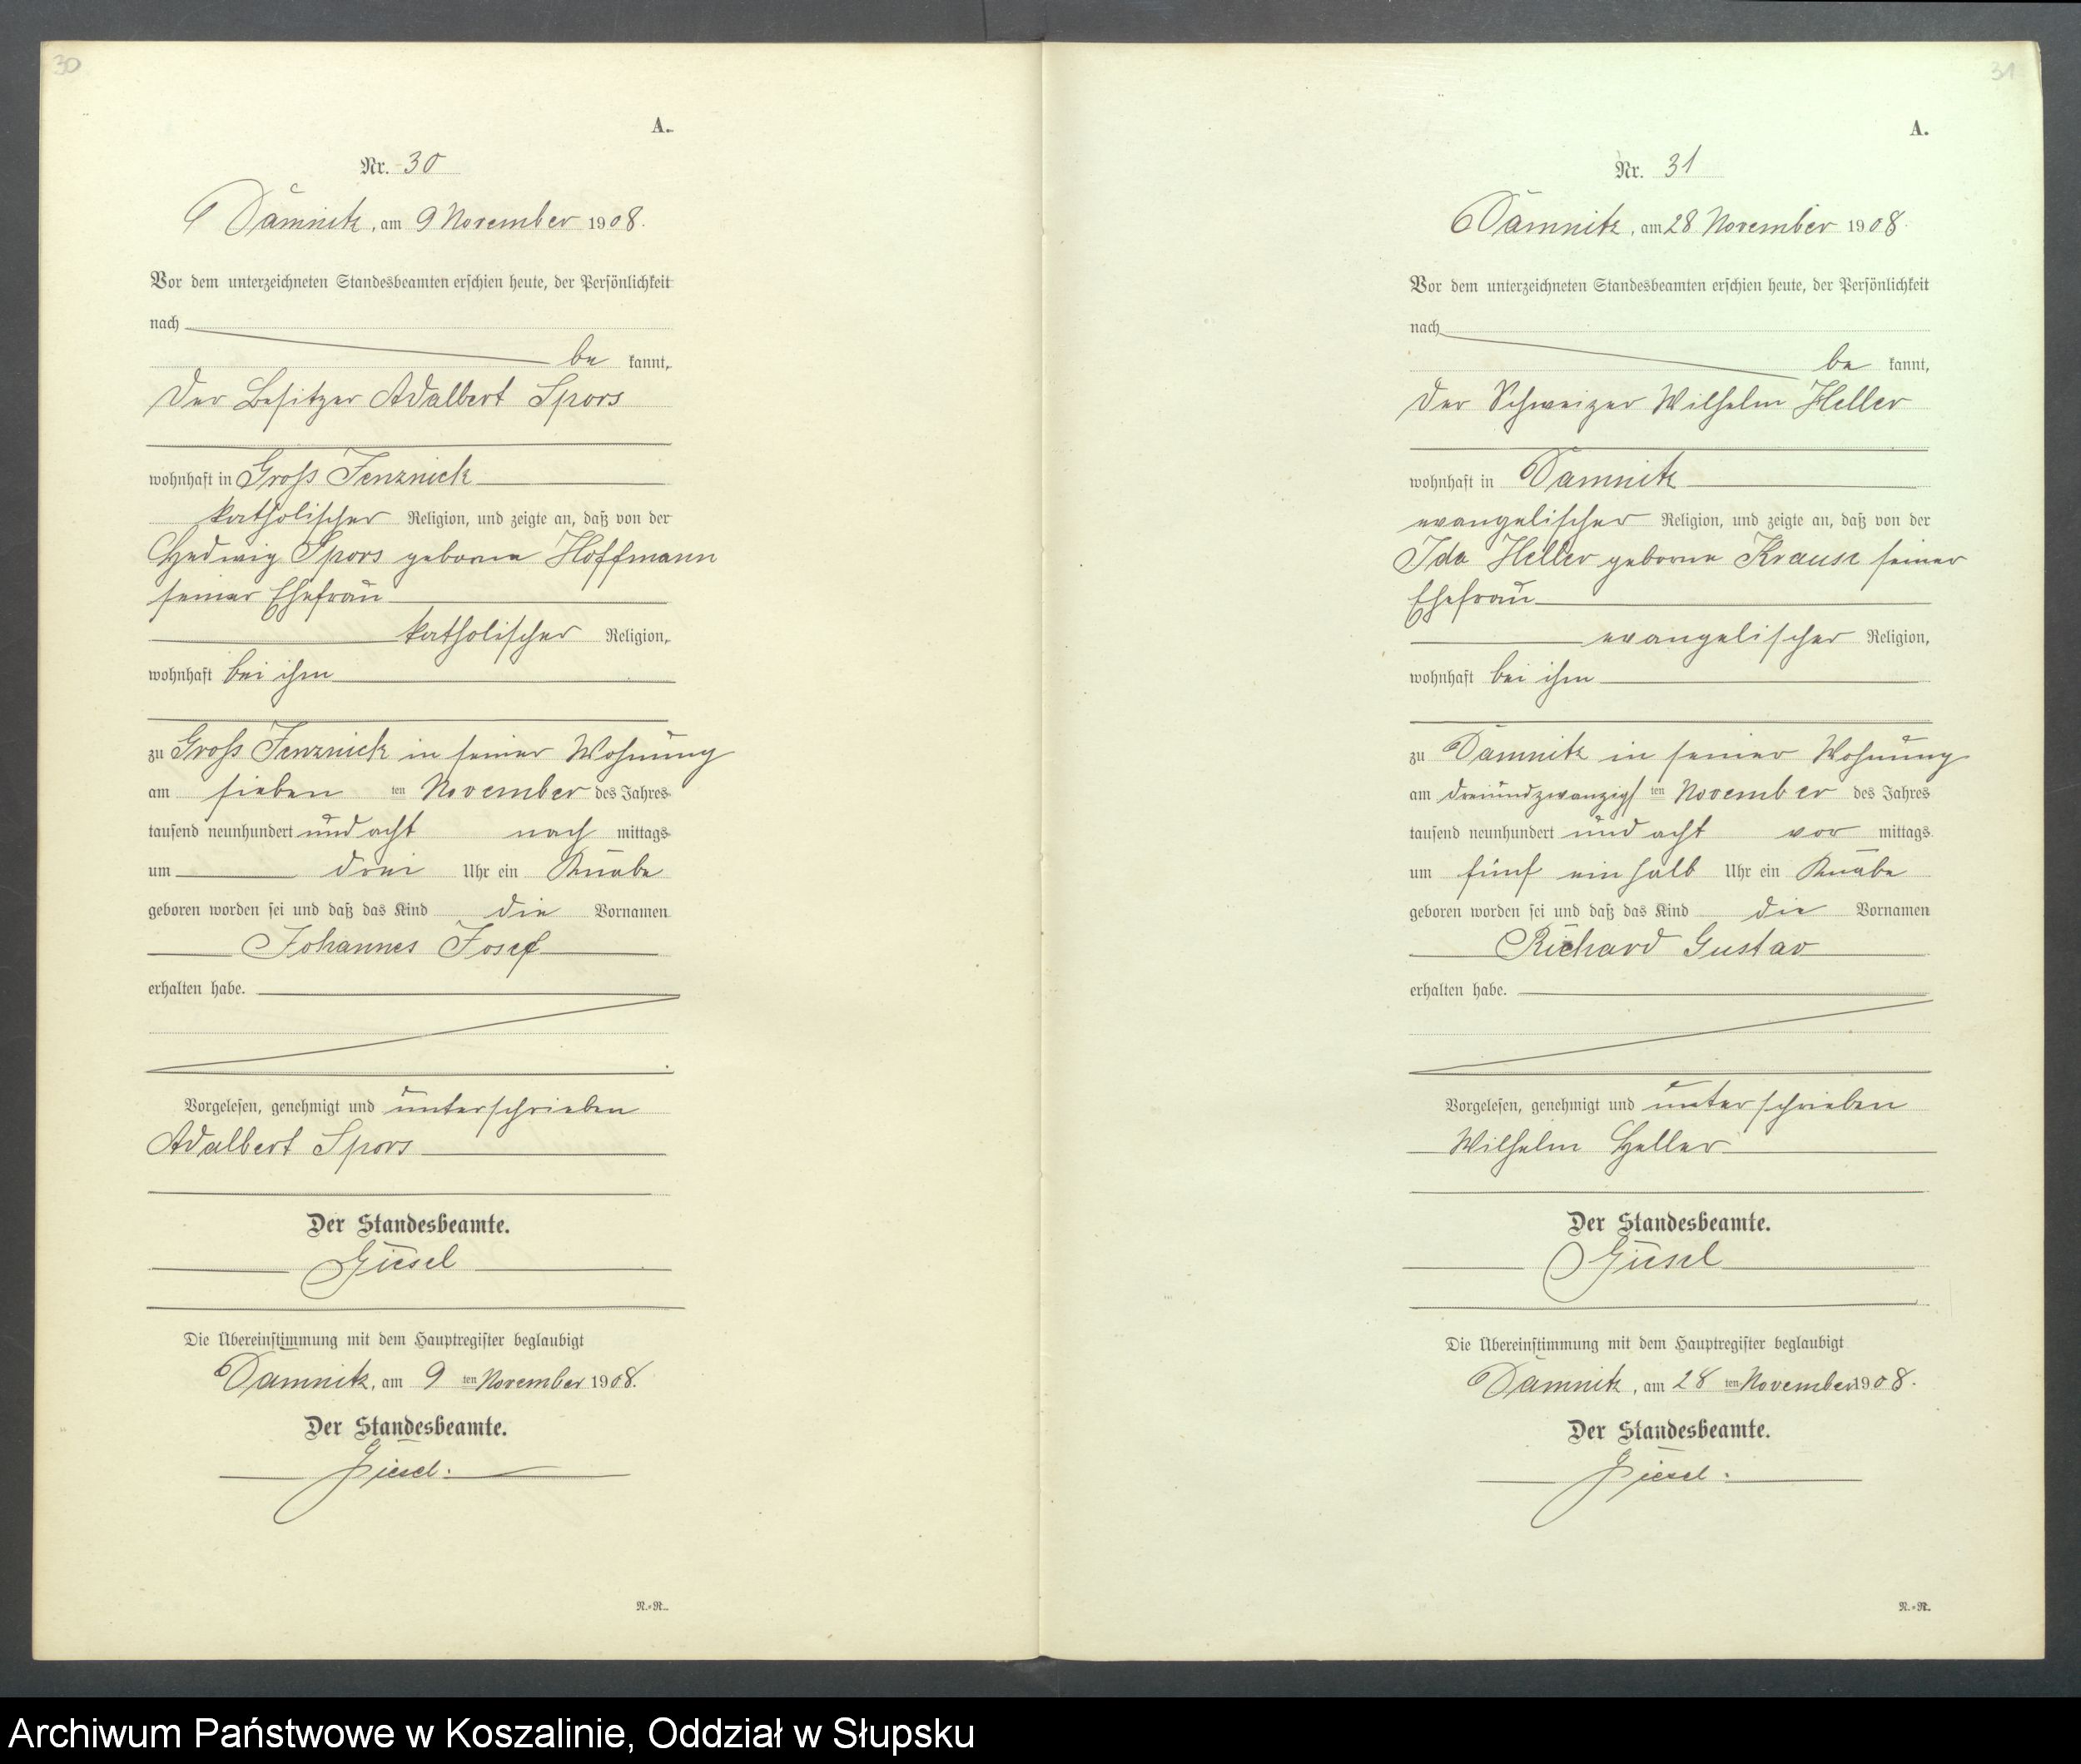 30
A.
Nr. 30
Damnitz, am 9 November 1908.
Vor dem unterzeichneten Standesbeamten erschien heute, der Persönlichkeit
nach
be kannt,
der Besitzer Adalbert Spors
wohnhaft in Groß Jenznick
katholischer Religion, und zeigte an, daß von der
Hedwig Spors geborne Hoffmann
seiner Ehefrau
katholischer Religion,
wohnhaft bei ihm
zu Groß Jenznick in seiner Wohnung
am sieben ten November des Jahres
tausend neunhundert und acht nach mittags
um drei Uhr ein Knabe
geboren worden sei und daß das Kind die Vornamen
Johannes Josef
erhalten habe.
Vorgelesen, genehmigt und unterschrieben
Adalbert Spors
Der Standesbeamte.
Giesel
Die Übereinstimmung mit dem Hauptregister beglaubigt
Damnitz, am 9 ten November 1908.
Der Standesbeamte.
Giesel.
N.=R.
31
A.
Nr. 31
Damnitz, am 28 November 1908.
Vor dem unterzeichneten Standesbeamten erschien heute, der Persönlichkeit
nach
be kannt,
der Schweizer Wilhelm Heller
wohnhaft in Damnitz
evangelischer Religion, und zeigte an, daß von der
Ida Heller geborne Krause seiner
Ehefrau
evangelischer Religion,
wohnhaft bei ihm
zu Damnitz in seiner Wohnung
am dreiundzwanzigs ten November des Jahres
tausend neunhundert und acht vor mittags
um fünf ein halb Uhr ein Knabe
geboren worden sei und daß das Kind die Vornamen
Richard Gustav
erhalten habe.
Vorgelesen, genehmigt und unterschrieben
Wilhelm Heller
Der Standesbeamte.
Giesel
Die Übereinstimmung mit dem Hauptregister beglaubigt
Damnitz, am 28 ten November 1908.
Der Standesbeamte.
Giesel.
N.=R.
Archiwum Państwowe w Koszalinie, Oddział w Słupsku